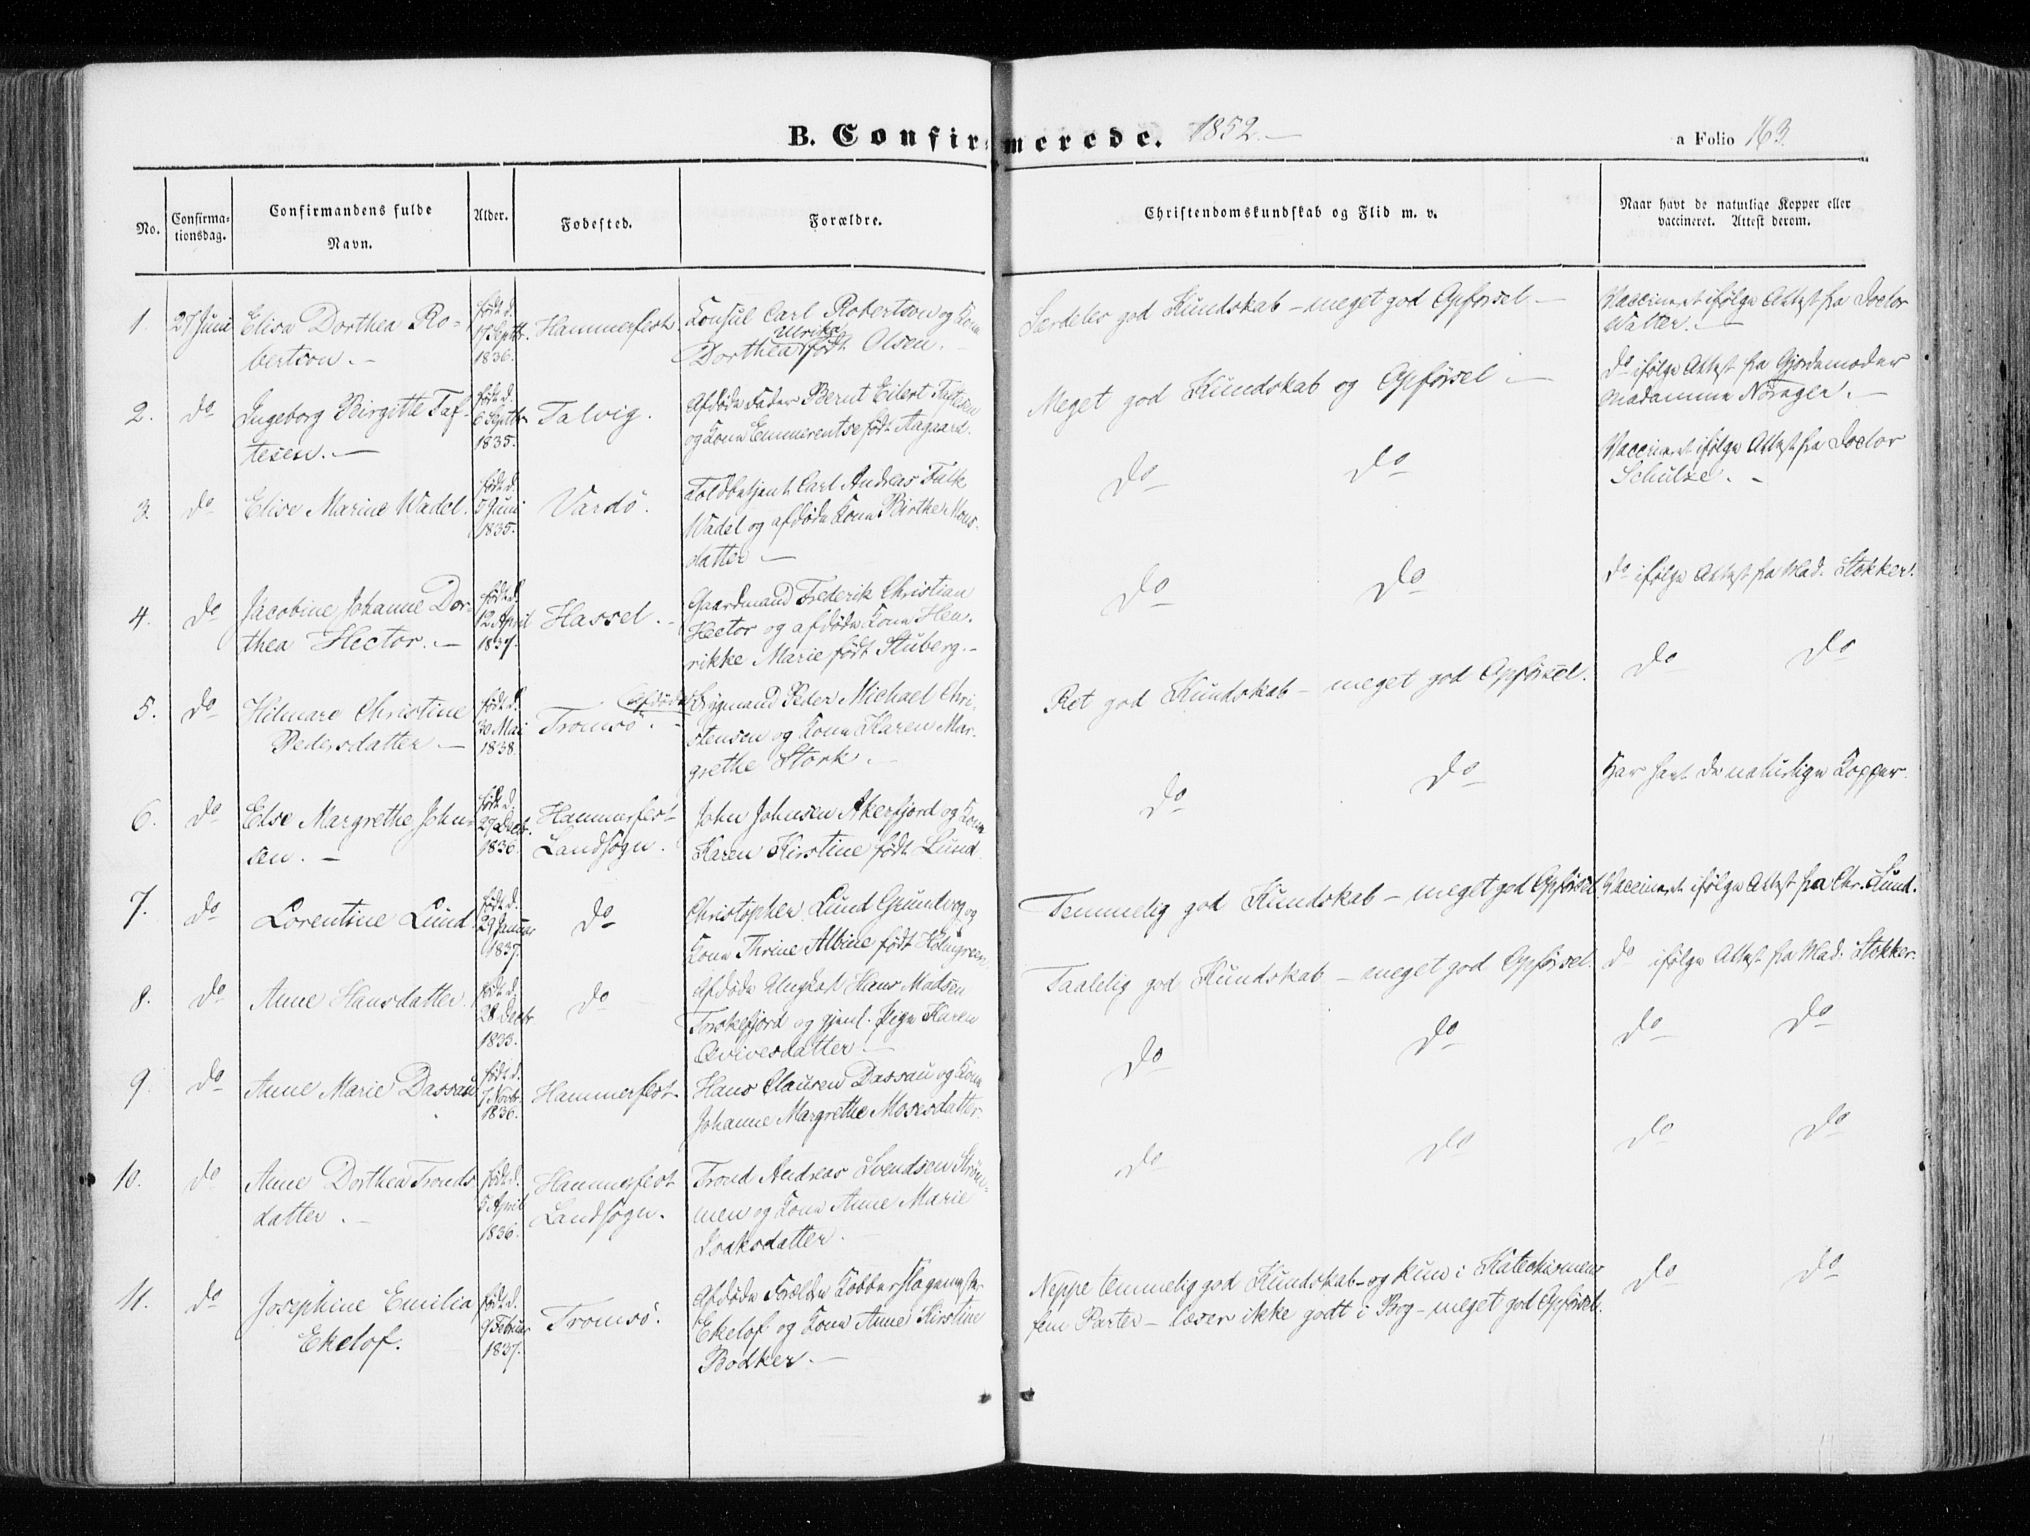 B. Confirmerede. 1852.—
a Folio 163.
No.
Confirma-
tionsdag.
Confirmandens fulde
Navn.
Alder.
Fødested.
Forældre.
Christendomskundskab og Flid m. v.
Naar havt de naturlige Kopper eller
vaccineret. Attest derom.
1. 27 Juni
Elisa Dorthea Ro-
bertson. —
født d.
17 Septbr.
1836.
Hammerfest.
Consul Carl Robertson og Kone
Ulrika
Dorthea født Olsen. —
Særdeles god Kundskab — meget god Opførsel —
Vaccineret ifølge Attest fra Doctor
Walter. —
2. do
Ingeborg Birgitte Taf-
tesen. —
født d.
6 Septbr
1835.
Talvig.
Afdøde Fader Bernt Eilert Taftesen
og Kone Emmerentse født Aagaard.
Meget god Kundskab og Opførsel. —
do ifølge Attest fra Gjordemoder
Madamme Norager. —
3. do
Elise Marine Wadel.
født d.
5 Juni
1835.
Vardö.
Toldbetjent Carl Andreas Falk
Wadel og afdøde Kone Birthe Mons-
datter —
do do
Vaccineret ifølge Attest fra Doctor
Schulze. —
4. do
Jacobine Johanne Dor-
thea Hector. —
født d.
12 April
1837.
Hassel. —
Gaardmand Frederik Christian
Hector og afdøde Kone Hen-
rikke Marie født Stuberg. —
do do
do ifølge Attest fra Mad. Stokker.
5. do
Hilmare Christine
Pedersdatter —
født d.
30 Mai
1838.
Tromsö. —
Afdøde
Bygmand Peder Michael Chri-
stensen og Kone Karen Mar-
grethe Stork. —
Ret god Kundskab — meget god Opførsel.
do do
6. do
Else Margrethe John-
sen. —
født d.
27 Decbr.
1836.
Hammerfest
Landsogn.
John Johnsen Akerfjord og Kone
Karen Kirstine født Lund.
do do
Har havt de naturlige Kopper.
7. do
Lorentine Lund.
født d.
29 Januar
1837.
do
Christopher Lund Grundvog og
Kone Thrine Albine født Holmgreen.
Temmelig god Kundskab — meget god Opførsel.
Vaccineret ifølge Attest fra Chr. Lund.
8. do
Anne Hansdatter.
født d.
28 Decbr
1833.
do
Afdøde Ungkarl Hans Madsen
Torskefjord og tjent. Pige Karen
Taalelig god Kundskab — meget god Opførsel.
do ifølge Attest fra Mad. Stokker.
9. do
Anne Marie Dassau
født d.
7 Novbr.
1836.
Hammerfest.
Hans Clausen Dassau og Kone
Johanne Margrethe Mosesdatter.
do do
do do
10. do
Anne Dorthea Tronds-
datter. —
født d.
5 April
1836.
Hammerfest
Landsogn.
Trond Andreas Svendsen Strøm-
men og Kone Anne Marie
do do
do do
11. do
Josephine Emilia
Ekelof.
født d.
9 Februar
1837.
Tromsö.
Afdøde Forældre Kobberslagermester
Ekelof og Kone Anne Kirstine
Bødker. —
Neppe temmelig god Kundskab — og kun i Katechismens
fem Parter — læser ikke godt i Bog — meget god Opførsel.
do do